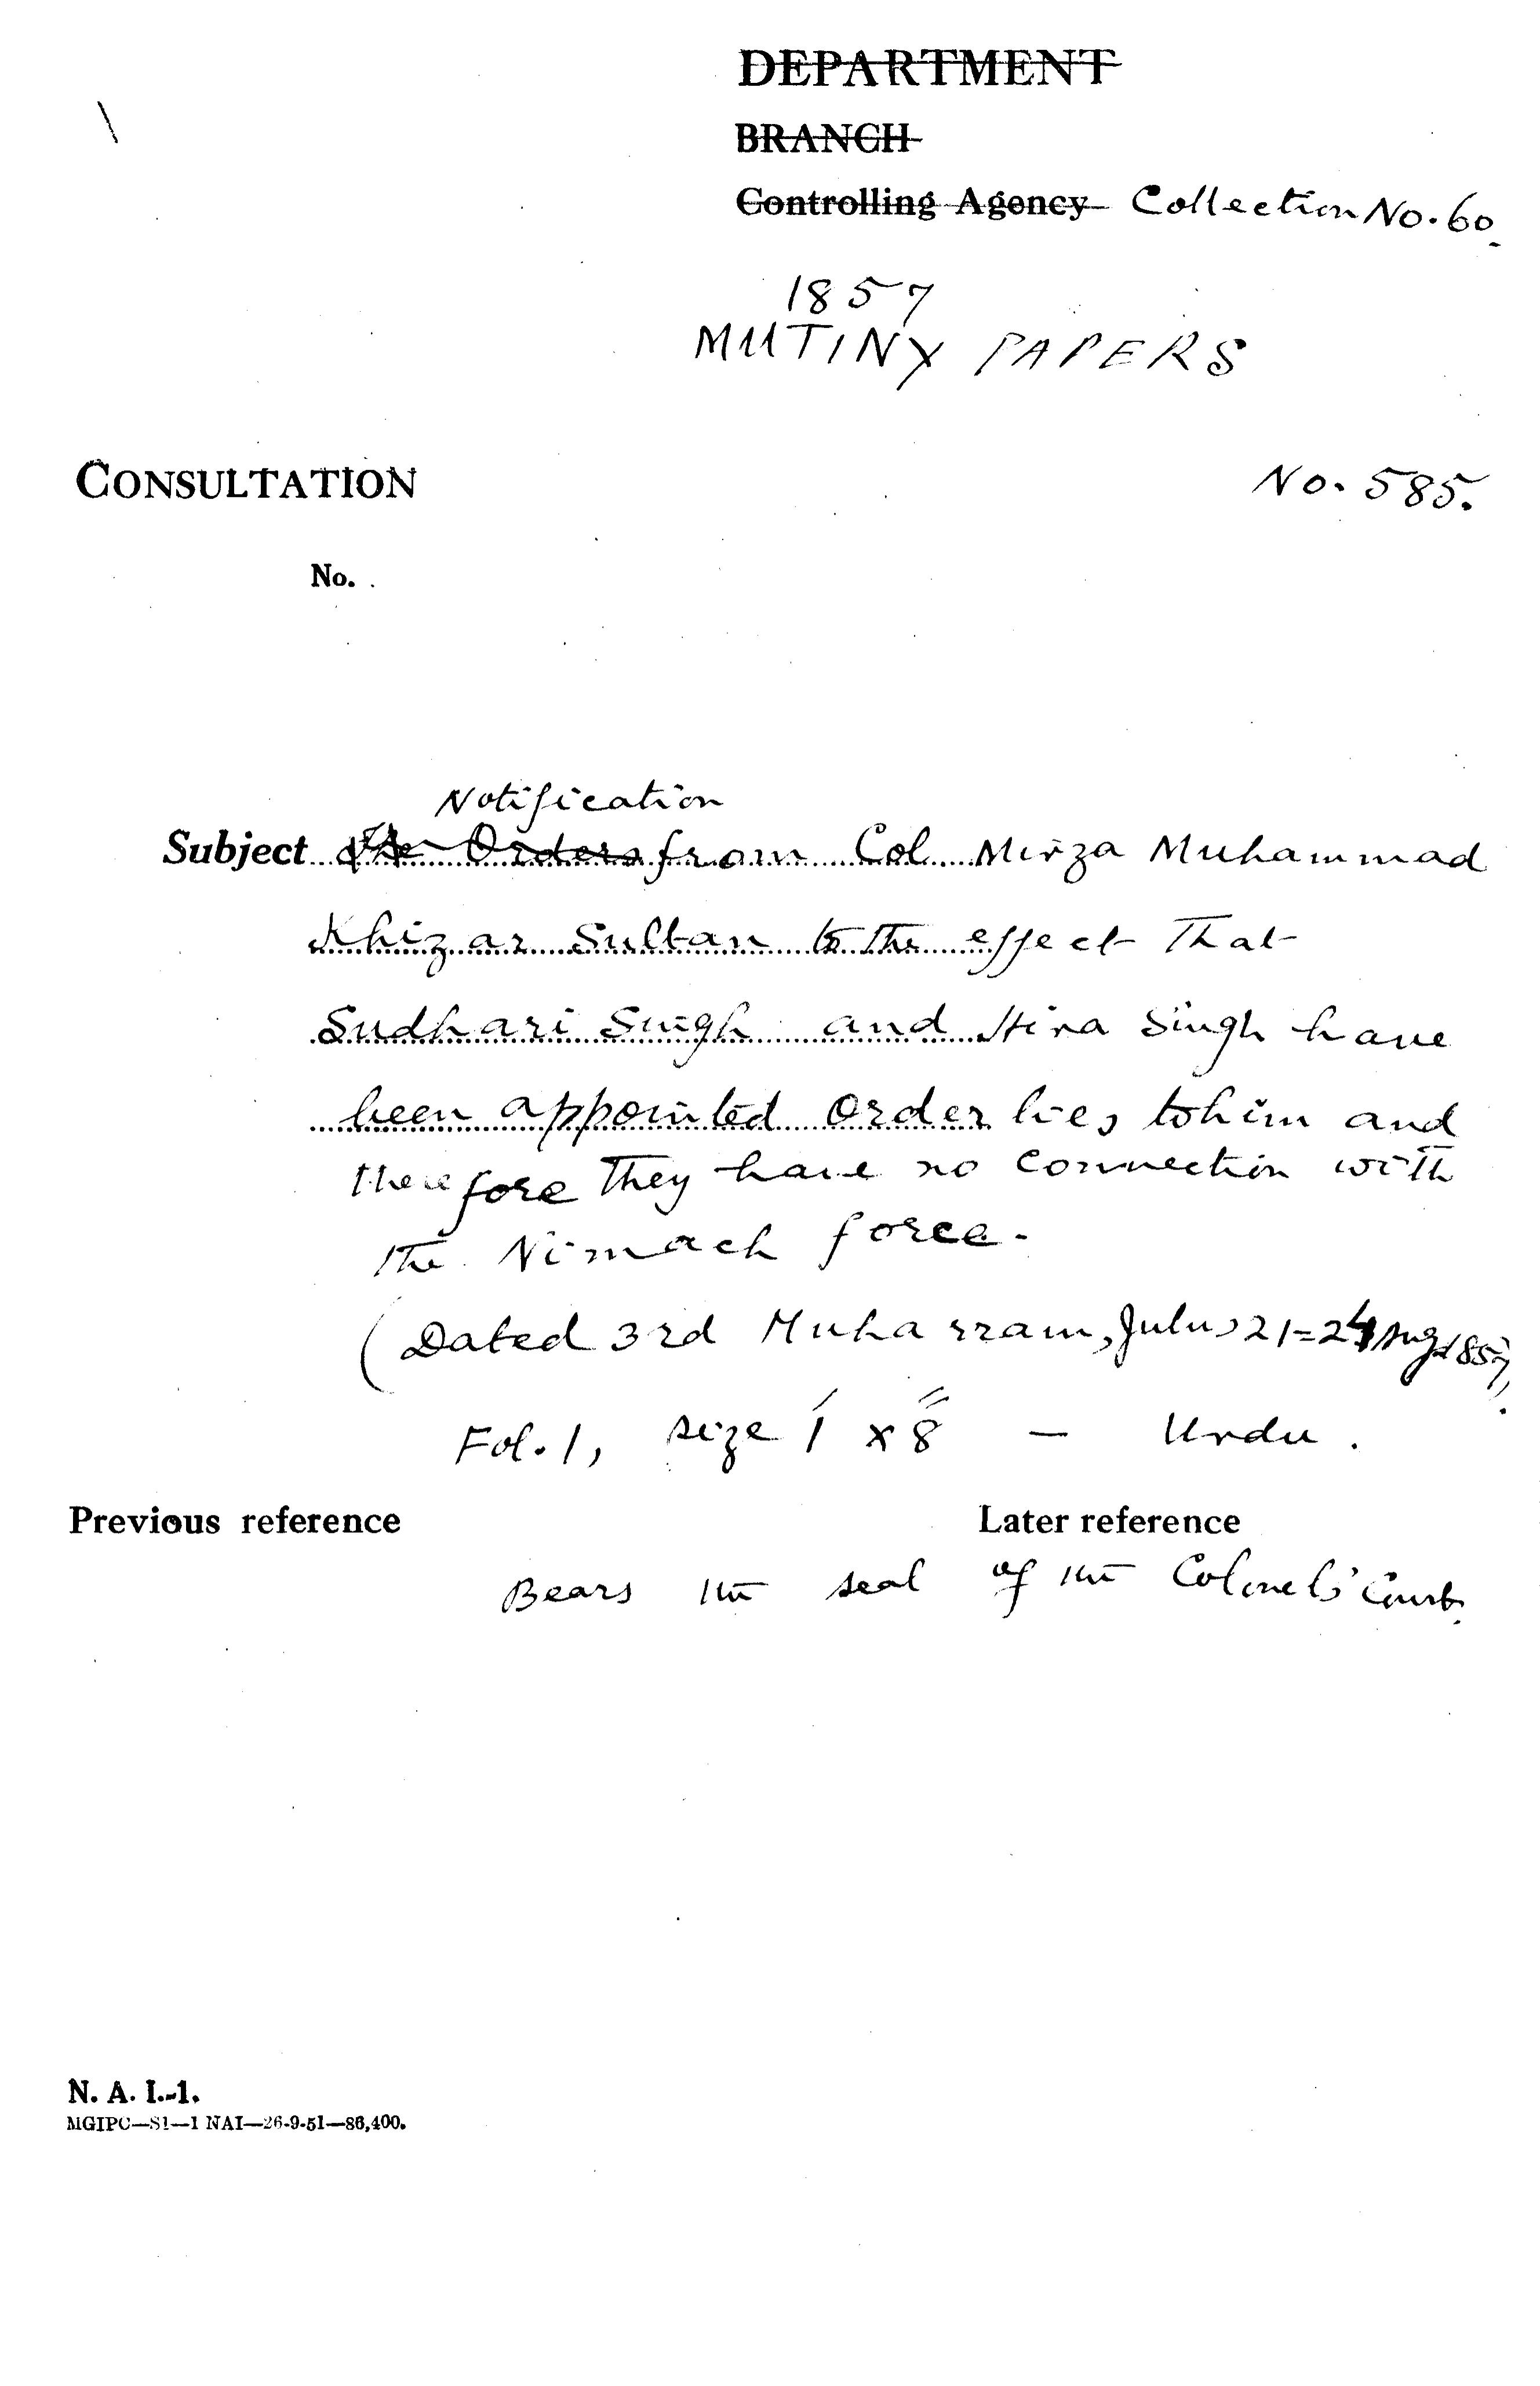 DEPARTMENT
BRANCH
Controlling Agency Collection No. 60.
1857
MUTINY PAPERS
CONSULTATION
No. 585.
No.
Notification
Subject The Orders from Col Mirza Muhammad
Khizar Sultan to the effect That
Sudhari Singh and Hira Singh have
been appointed orderlies to him and
therefore They have no connection with
the Nimach force.
(Dated 3rd Muharram, Julus 21=24 Aug 1857)
Fol. 1, size 1' x 8" — Urdu.
Previous reference
Later reference
Bears the seal of the Colonel's Court.
N. A. I.-1.
MGIPC—S1—1 NAI—26-9-51—86,400.